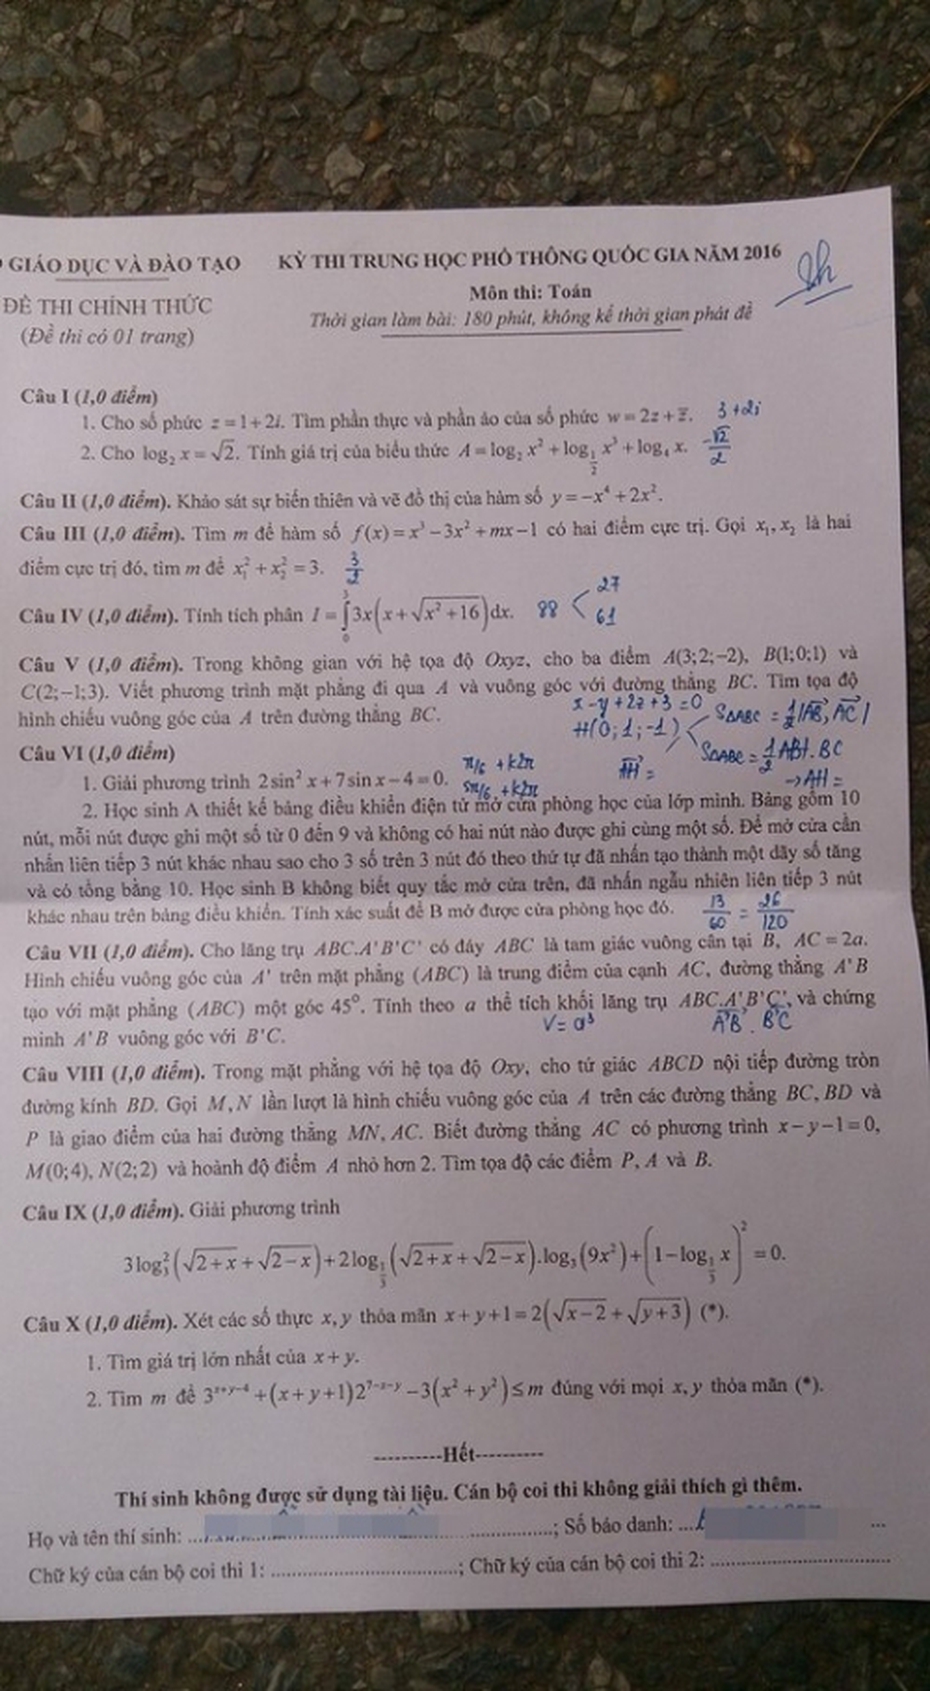 GIÁO DỤC VÀ ĐÀO TẠO
KỲ THI TRUNG HỌC PHỔ THÔNG QUỐC GIA NĂM 2016
ĐỀ THI CHÍNH THỨC
Môn thi: Toán
(Đề thi có 01 trang)
Thời gian làm bài: 180 phút, không kể thời gian phát đề
Câu I (1,0 điểm)
1. Cho số phức z = 1 + 2i. Tìm phần thực và phần ảo của số phức w = 2z + z̅. 3 + 2i
2. Cho log₂ x = √2. Tính giá trị của biểu thức A = log₂ x² + log_{1/2} x³ + log₄ x. -√2/2
Câu II (1,0 điểm). Khảo sát sự biến thiên và vẽ đồ thị của hàm số y = −x⁴ + 2x².
Câu III (1,0 điểm). Tìm m để hàm số f(x) = x³ − 3x² + mx − 1 có hai điểm cực trị. Gọi x₁, x₂ là hai
điểm cực trị đó, tìm m để x₁² + x₂² = 3. 3/2
Câu IV (1,0 điểm). Tính tích phân I = ∫₀³ 3x(x + √(x² + 16))dx. 88 < 27
61
Câu V (1,0 điểm). Trong không gian với hệ tọa độ Oxyz, cho ba điểm A(3;2;−2), B(1;0;1) và
C(2;−1;3). Viết phương trình mặt phẳng đi qua A và vuông góc với đường thẳng BC. Tìm tọa độ
hình chiếu vuông góc của A trên đường thẳng BC.
x − y + 2z + 3 = 0
H(0; 1; −1)
S∆ABC = 1/2 |AB, AC|
S∆ABC = 1/2 AH . BC
→ AH =
AH =
Câu VI (1,0 điểm)
1. Giải phương trình 2sin² x + 7sin x − 4 = 0. π/6 + k2π
5π/6 + k2π
2. Học sinh A thiết kế bảng điều khiển điện tử mở cửa phòng học của lớp mình. Bảng gồm 10
nút, mỗi nút được ghi một số từ 0 đến 9 và không có hai nút nào được ghi cùng một số. Để mở cửa cần
nhấn liên tiếp 3 nút khác nhau sao cho 3 số trên 3 nút đó theo thứ tự đã nhấn tạo thành một dãy số tăng
và có tổng bằng 10. Học sinh B không biết quy tắc mở cửa trên, đã nhấn ngẫu nhiên liên tiếp 3 nút
khác nhau trên bảng điều khiển. Tính xác suất để B mở được cửa phòng học đó. 13/60 = 26/120
Câu VII (1,0 điểm). Cho lăng trụ ABC.A'B'C' có đáy ABC là tam giác vuông cân tại B, AC = 2a.
Hình chiếu vuông góc của A' trên mặt phẳng (ABC) là trung điểm của cạnh AC, đường thẳng A'B
tạo với mặt phẳng (ABC) một góc 45°. Tính theo a thể tích khối lăng trụ ABC.A'B'C', và chứng
minh A'B vuông góc với B'C.
V = a³
A'B . B'C
Câu VIII (1,0 điểm). Trong mặt phẳng với hệ tọa độ Oxy, cho tứ giác ABCD nội tiếp đường tròn
đường kính BD. Gọi M, N lần lượt là hình chiếu vuông góc của A trên các đường thẳng BC, BD và
P là giao điểm của hai đường thẳng MN, AC. Biết đường thẳng AC có phương trình x − y − 1 = 0,
M(0;4), N(2;2) và hoành độ điểm A nhỏ hơn 2. Tìm tọa độ các điểm P, A và B.
Câu IX (1,0 điểm). Giải phương trình
3log₃²(√(2+x) + √(2−x)) + 2log_{1/3}(√(2+x) + √(2−x)).log₃(9x²) + (1 − log_{1/3} x)² = 0.
Câu X (1,0 điểm). Xét các số thực x, y thỏa mãn x + y + 1 = 2(√(x−2) + √(y+3)) (*).
1. Tìm giá trị lớn nhất của x + y.
2. Tìm m để 3^{x+y−4} + (x + y + 1)2^{7−x−y} − 3(x² + y²) ≤ m đúng với mọi x, y thỏa mãn (*).
----------Hết----------
Thí sinh không được sử dụng tài liệu. Cán bộ coi thi không giải thích gì thêm.
Họ và tên thí sinh: ..............................; Số báo danh: ..............................
Chữ ký của cán bộ coi thi 1: ..............................; Chữ ký của cán bộ coi thi 2: ..............................